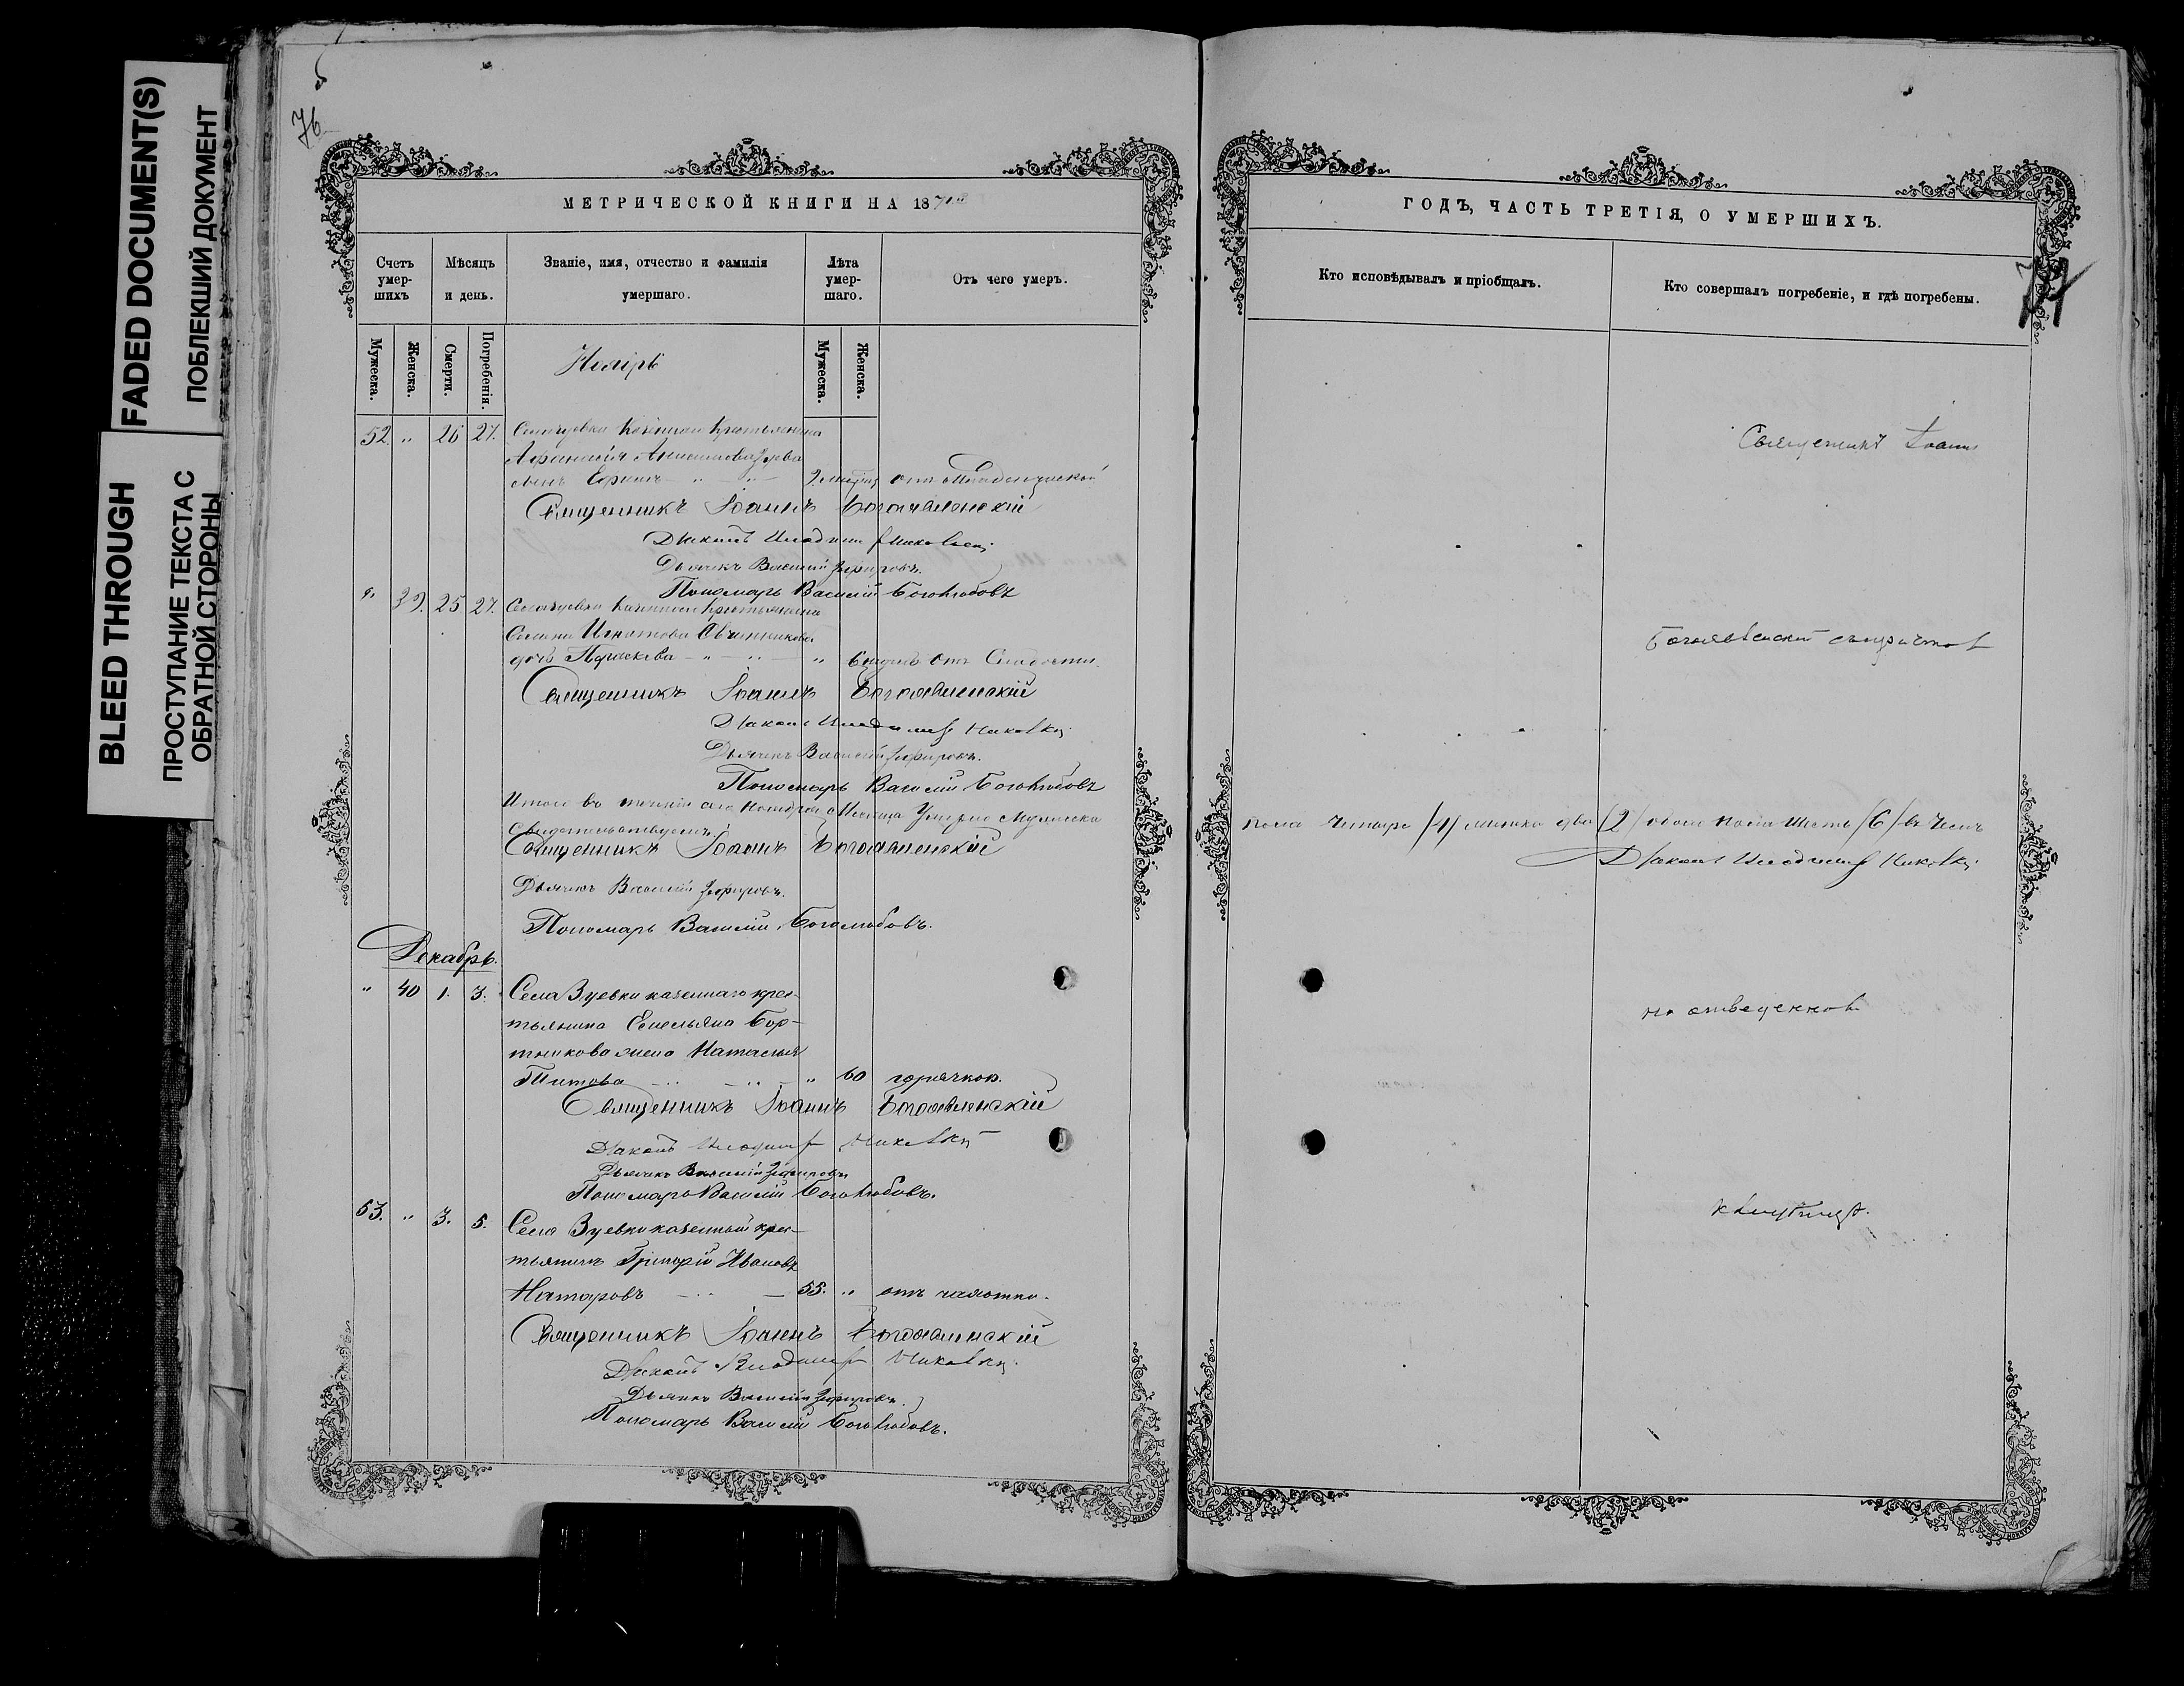 FADED DOCUMENT(S)
ПОБЛЕКШИЙ ДОКУМЕНТ
BLEED THROUGH
ПРОСТУПАНИЕ ТЕКСТА С
ОБРАТНОЙ СТОРОНЫ
76
МЕТРИЧЕСКОЙ КНИГИ НА 187
Счетъ умер-шихъ
Мѣсяцъ и день.
Званіе, имя, отчество и фамилія умершаго.
Лѣта умер-шаго.
Отъ чего умеръ.
Мужеска.
Женска.
Смерти.
Погребенія.
Мужеска.
Женска.
Ноябрь
52 " 26 27. Села Зуевки казеннаго крестьянина
Афанасія Анисимова
сынъ Ефимъ " " отъ младенческой
Священникъ Іоаннъ Богоявленскій
Діаконъ Владимір
Дьячекъ Василій Зефировъ.
Пономарь Василій Боголюбовъ
" 39. 25 27. Села Зуевки казеннаго крестьянина
Игнатова Овчинникова
дочь Параскева " " " отъ слабости
Священникъ Іоаннъ Богоявленскій
Діаконъ Владимір
Дьячекъ Василій Зефировъ.
Пономарь Василій Боголюбовъ
Итого въ теченіи сего Ноября Месяца Умерло Мужеска
Свидетельствуемъ:
Священникъ Іоаннъ Богоявленскій
Дьячекъ Василій Зефировъ.
Пономарь Василій Боголюбовъ.
Декабрь.
" 40 1. 3. Села Зуевки казеннаго крес-
тьянина Емельяна Бор-
тникова жена Наталья
Титова " 60 горячкой.
Священникъ Іоаннъ Богоявленскій
Діаконъ Владимір
Дьячекъ Василій Зефировъ
Пономарь Василій Боголюбовъ.
53. " 3. 5. Села Зуевки казенный крес-
тьянинъ Григорій Ивановъ
Натаровъ 55. " отъ чахотки.
Священникъ Іоаннъ Богоявленскій
Діаконъ Владимір
Дьячекъ Василій Зефировъ.
Пономарь Василій Боголюбовъ.
ГОДЪ, ЧАСТЬ ТРЕТІЯ, О УМЕРШИХЪ.
Кто исповѣдывалъ и пріобщалъ.
Кто совершалъ погребеніе, и гдѣ погребены.
Священникъ Іоаннъ
Богоявленскій съ причтом
пола четыре /4/ женска два /2/ обоего пола шесть /6/ въ чемъ
Діаконъ Владимір
на отведенном
кладбище.